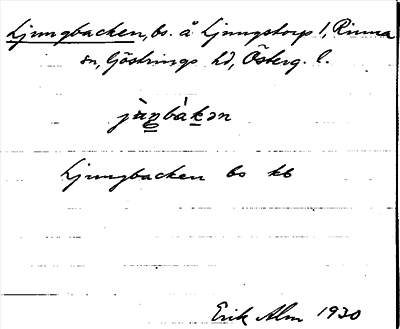 Ljungbacken, bs. å Ljungstorp 1, Rinna
sn, Göstrings hd, Österg. l.
Ljungbacken bs kb
Erik Alm 1930